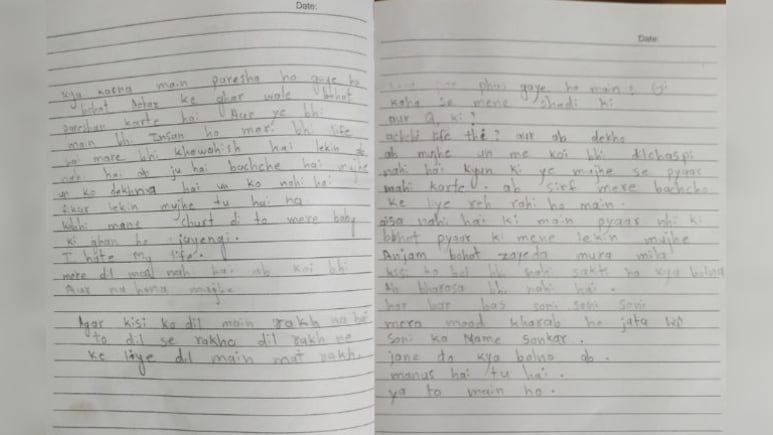 Date:
kya karna main paresha ho gaye ho
bohot ke ghar wale bohot
pareshan karte hai Aur ye bhi
main bhi Insan ho meri bhi life
hai mare bhi khowahish hai lekin
nahi hai ju hai bachche hai mujhe
un ko dekhna hai un ko nahi hai
fikar lekin mujhe tu hai na
kabhi mane di to mere baby
ki ho jayengi.
I hate my life.
mere dil mai nah hai ab koi bhi
Aur na hona mujhe
Agar kisi ko dil main rakh na hai
to dil se rakho dil rakh ne
ke liye dil main mat rakh.
Date
phas gaye ho main
kaha se mene shadi ki
aur Q. ki?
achchi life thi? aur ab dekho
ab mujhe un me koi bhi dilchaspi
nahi hai kyun ki ye mujhe se pyaar
nahi karte. ab sirf mere bachcho
ke liye reh rahi ho main.
aisa nahi hai ki main pyaar nhi ki
bohot pyaar ki mene lekin mujhe
Anjam bohot zayeda mura mila
kisi ko bol bhi nahi sakti ho kya bolna
Ab bharasa bhi nahi hai.
har bar bas soni soni soni
mera mood kharab ho jata
soni ka Name sonkar.
jane do kya bolno ab.
manus hai tu hai.
ya to main ho.